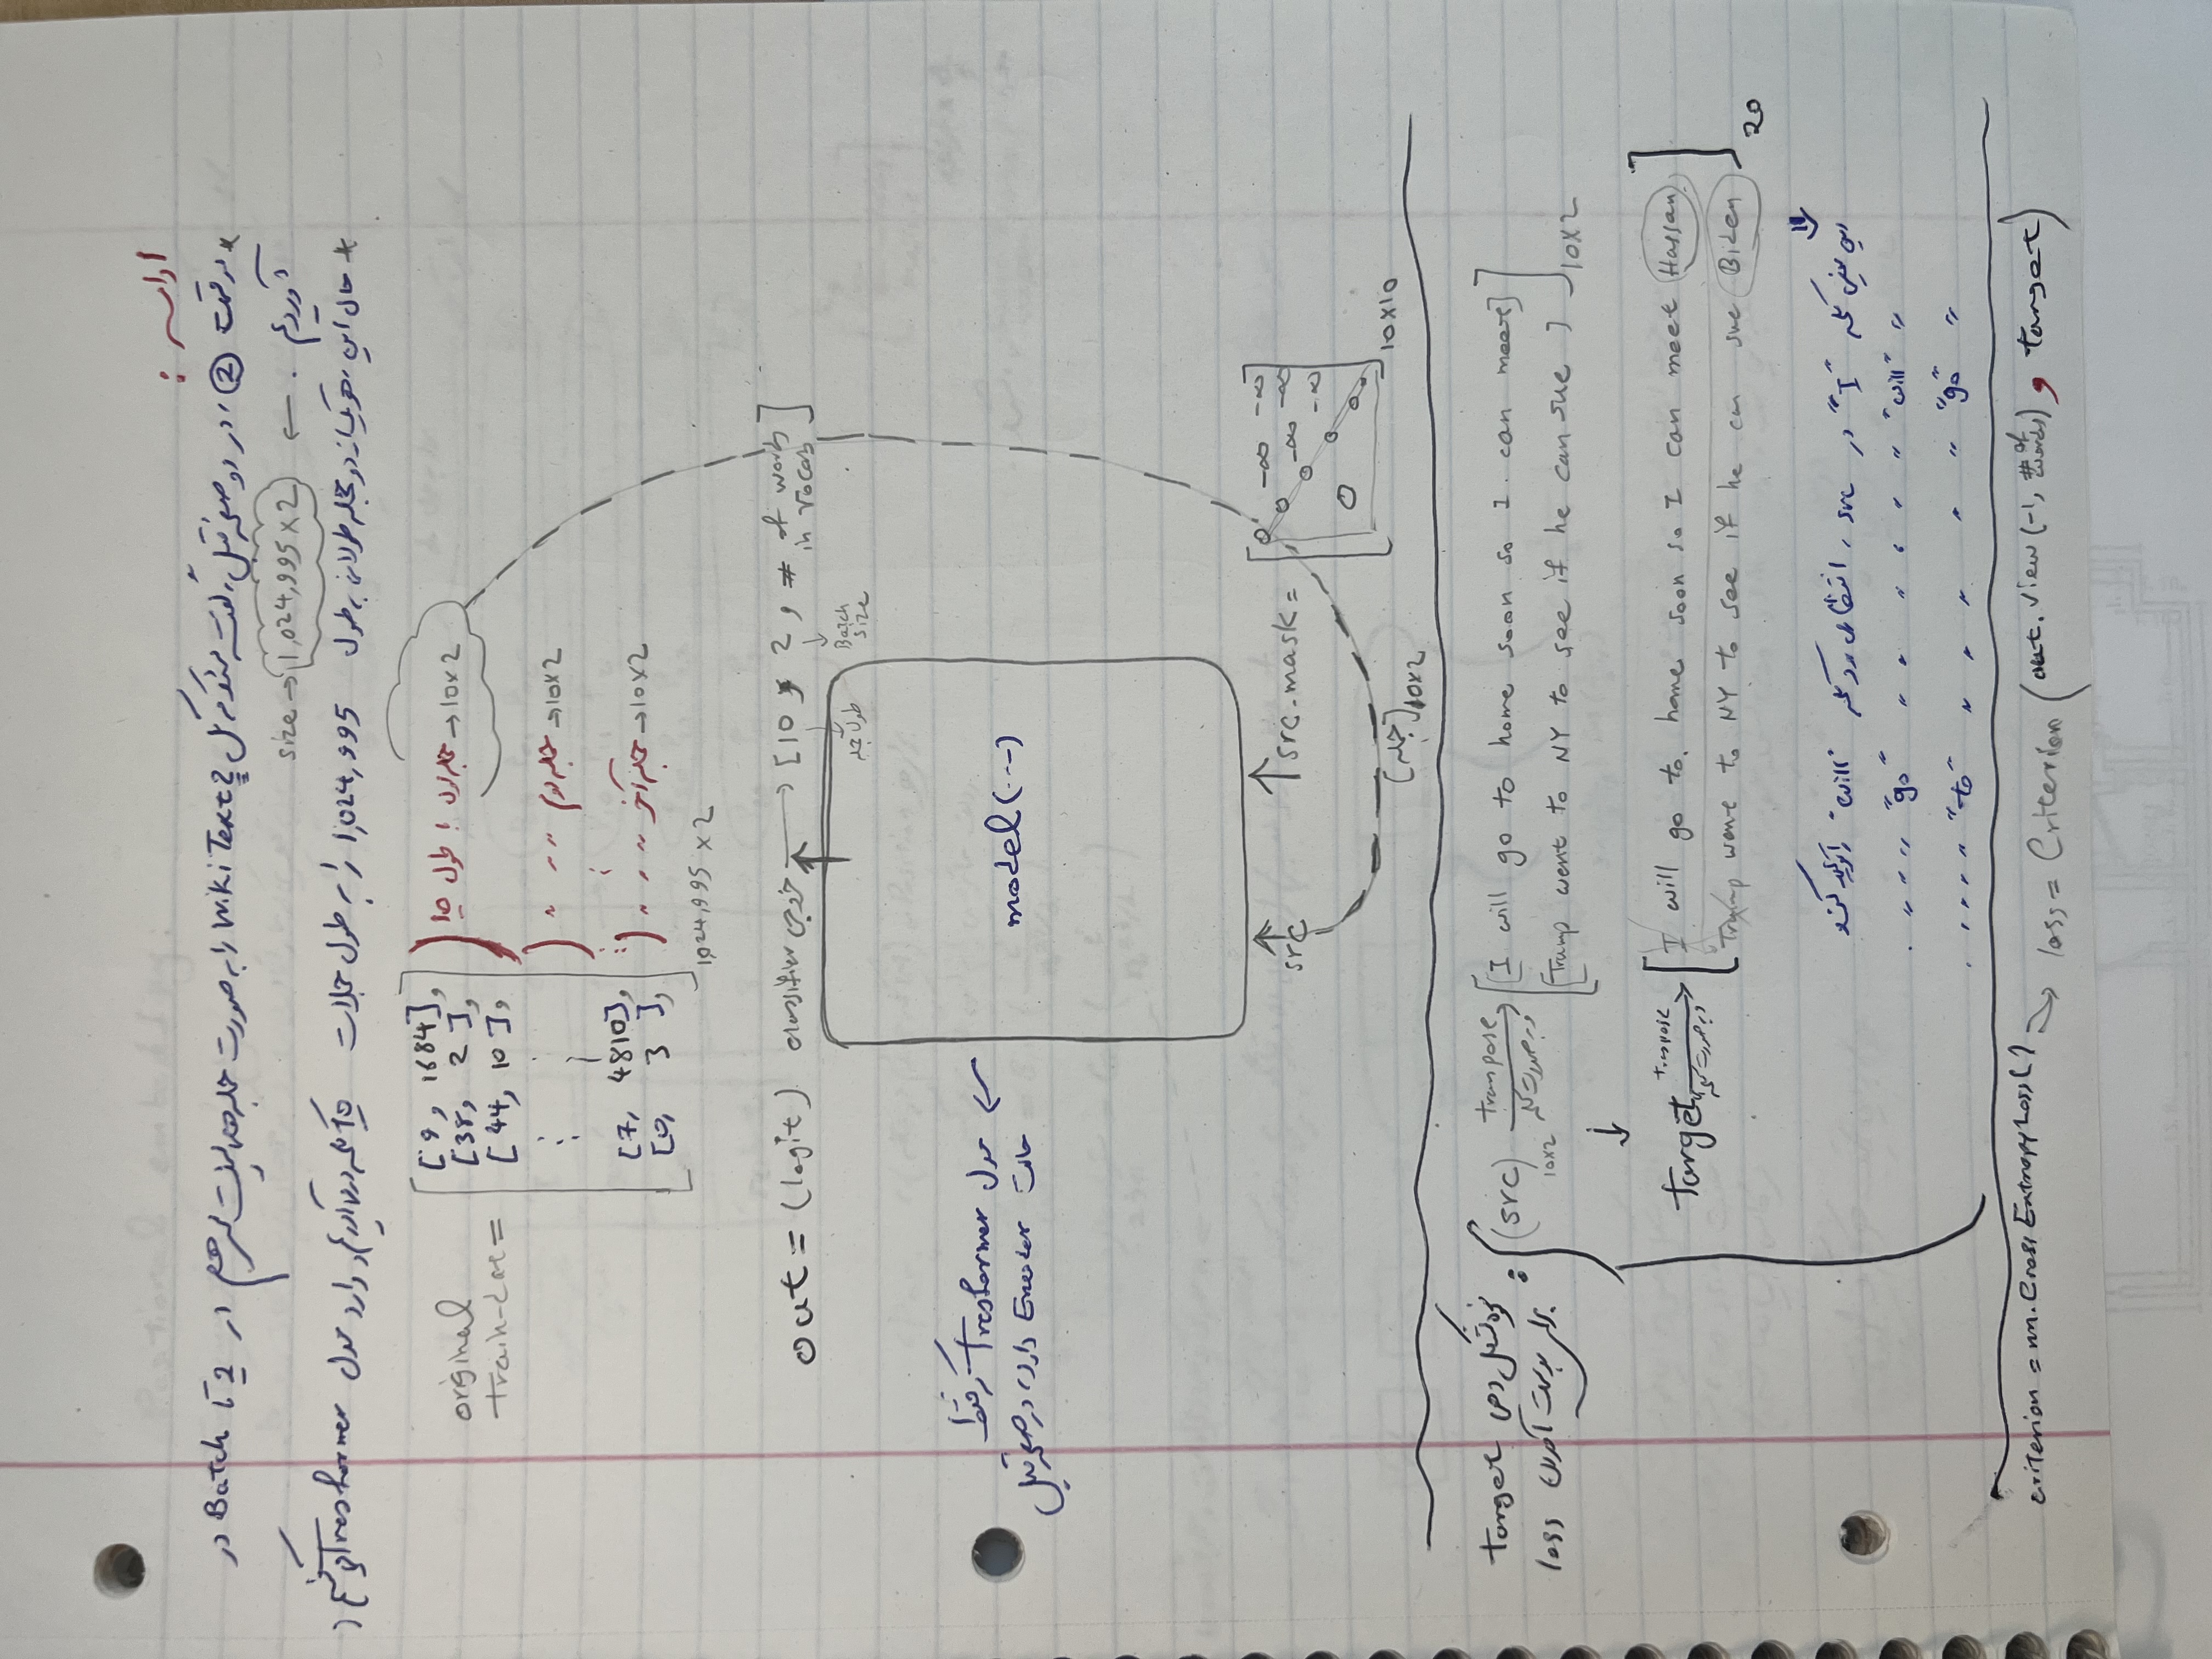 ادامه :
* در قسمت ②، در دو صفحه قبل، گفته میشود که کل WikiText2 را به صورت جمله‌های پشت سر هم در 2 تا Batch در
آوردیم . ← size → 1,024,995 x 2
* حال این هر یک از دو جمله طولانی به طول 1,024,995 را به طول جملات 10 کلمه در می‌آوریم و وارد مدل Tresformer می کنیم
original train-dat =
[9, 1684],
[38, 2],
[44, 10],
[7, 4810],
[0, 3],
1,024,995 x 2
جمله اول ! طول 10 → 10x2
جمله دوم " " " → 10x2
جمله آخر " " " → 10x2
out = (logit) classifier خروجی → [10, 2, # of words in vocab]
طول جمله
Batch size
model(...)
← مدل Tresformer که فقط
حالت Encoder دارد، در صفحه قبل
src
src-mask =
0 -∞ -∞
0 -∞ -∞
0 -∞
0
0 0
10x10
[جمله] 10x2
نحوه تشکیل دهی target
برای بدست آوردن loss :
(src) 10x2 transpose و به صورت کلمه →
[I will go to home soon so I can meet]
[Trump went to NY to see if he can sue ] 10x2
↓
Target transpose و به صورت کلمه →
I will go to home soon so I can meet Hassan
Trump went to NY to see if he can sue Biden
20
این یعنی کلمه "I" در src ، انتظار می رود کلمه "will" را تولید کند
" "will" " " " " " " "go" " " " .
" "go" " " " " " "to" " " " " .
criterion = nn.CrossEntropyLoss( )
loss = Criterion (out.view(-1, # of words), target)